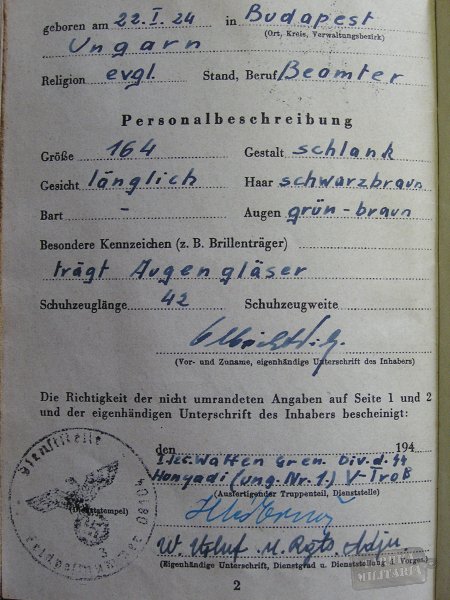 geboren am 22.I.24 in Budapest
(Ort, Kreis, Verwaltungsbezirk)
Ungarn
Religion evgl. Stand, Beruf Beamter
Personalbeschreibung
Größe 164 Gestalt schlank
Gesicht länglich Haar schwarzbraun
Bart - Augen grün-braun
Besondere Kennzeichen (z. B. Brillenträger)
trägt Augengläser
Schuhzeuglänge 42 Schuhzeugweite
(Vor- und Zuname, eigenhändige Unterschrift des Inhabers)
Die Richtigkeit der nicht umrandeten Angaben auf Seite 1 und 2
und der eigenhändigen Unterschrift des Inhabers bescheinigt:
den 194
Waffen Gren. Div. d. SS
Honyadi (ung. Nr. 1.) V-Troß
(Ausfertigender Truppenteil, Dienststelle)
(Dienststempel)
Dienststelle
Feldpostnummer
3
(Eigenhändige Unterschrift, Dienstgrad u. Dienststellung d. Vorges.)
2
MILITARIA